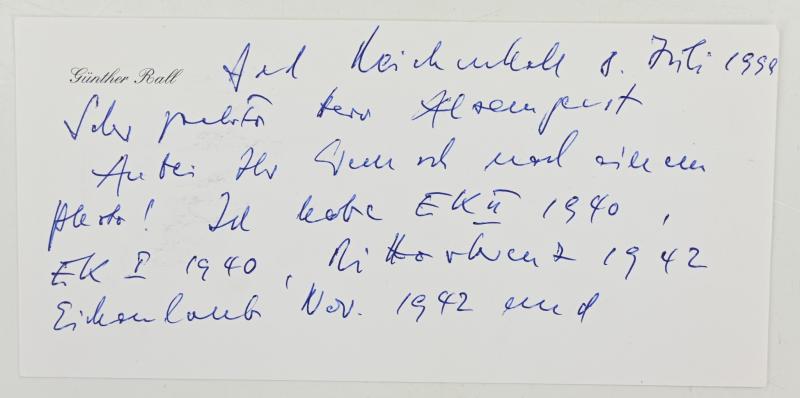 Günther Rall
Bad Reichenhall 8. Juli 1999
Sehr geehrter Herr
Anbei Ihr Wunsch nach einem
Photo! Ich habe EK II 1940,
EK I 1940, Ritterkreuz 1942
Eichenlaub Nov. 1942 und